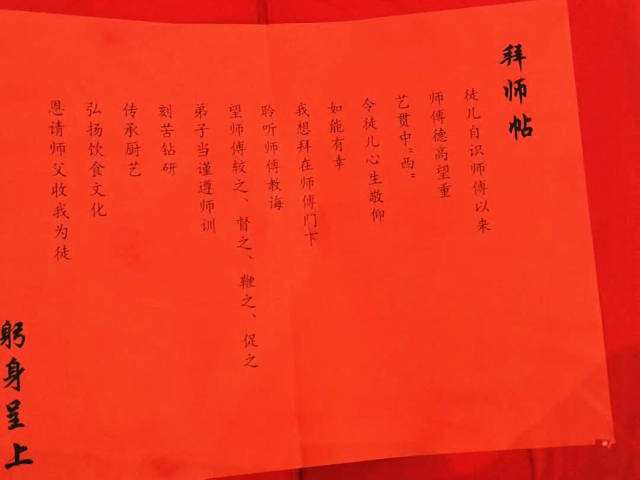 拜师帖
徒儿自识师傅以来
师傅德高望重
艺贯中“西“
令徒儿心生敬仰
如能有幸
我想拜在师傅门下
聆听师傅教诲
望师傅较之、督之、鞭之、促之
弟子当谨遵师训
刻苦钻研
传承厨艺
弘扬饮食文化
恩请师父收我为徒
躬身呈上